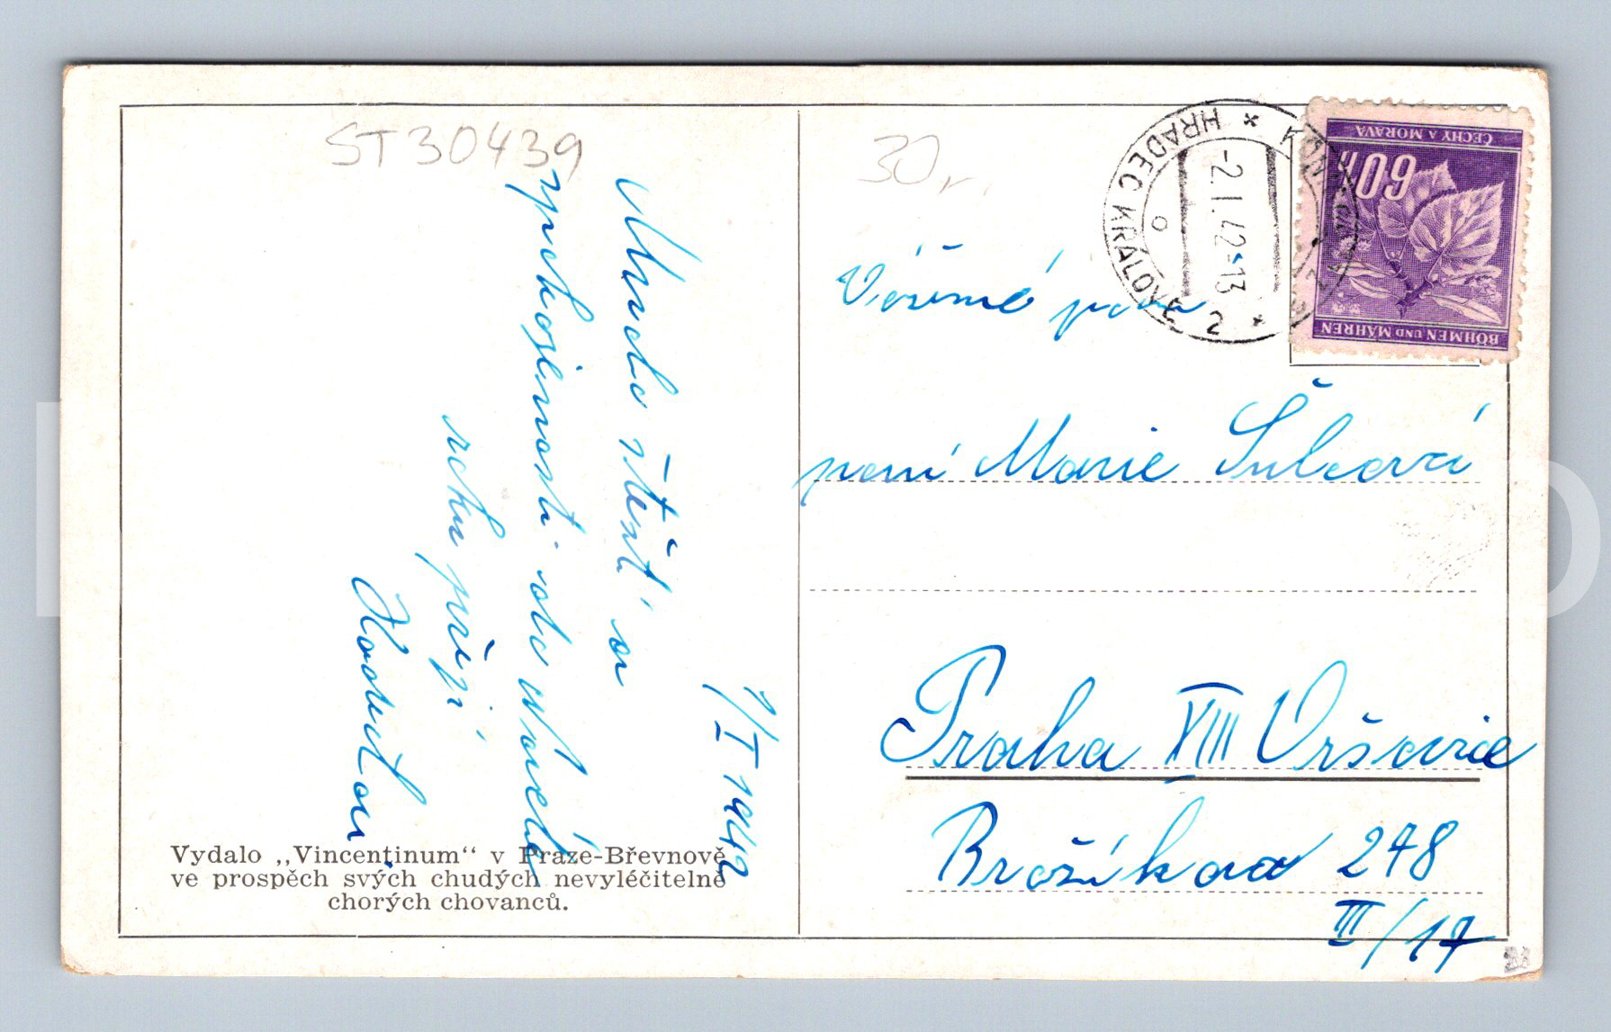 ST30439
1/I 1942
Mnoho štěstí a
spokojenosti do nového
roku přeje
Vydalo „Vincentinum“ v Praze-Břevnově
ve prospěch svých chudých nevyléčitelně
chorých chovanců.
30,-
HRADEC KRÁLOVÉ 2
-2.I.42-13
ČECHY A MORAVA
60h
BÖHMEN UND MÄHREN
Vážená paní
paní Marie Šulcová
Praha XIII Vršovice
Brožíkova 278
III/17